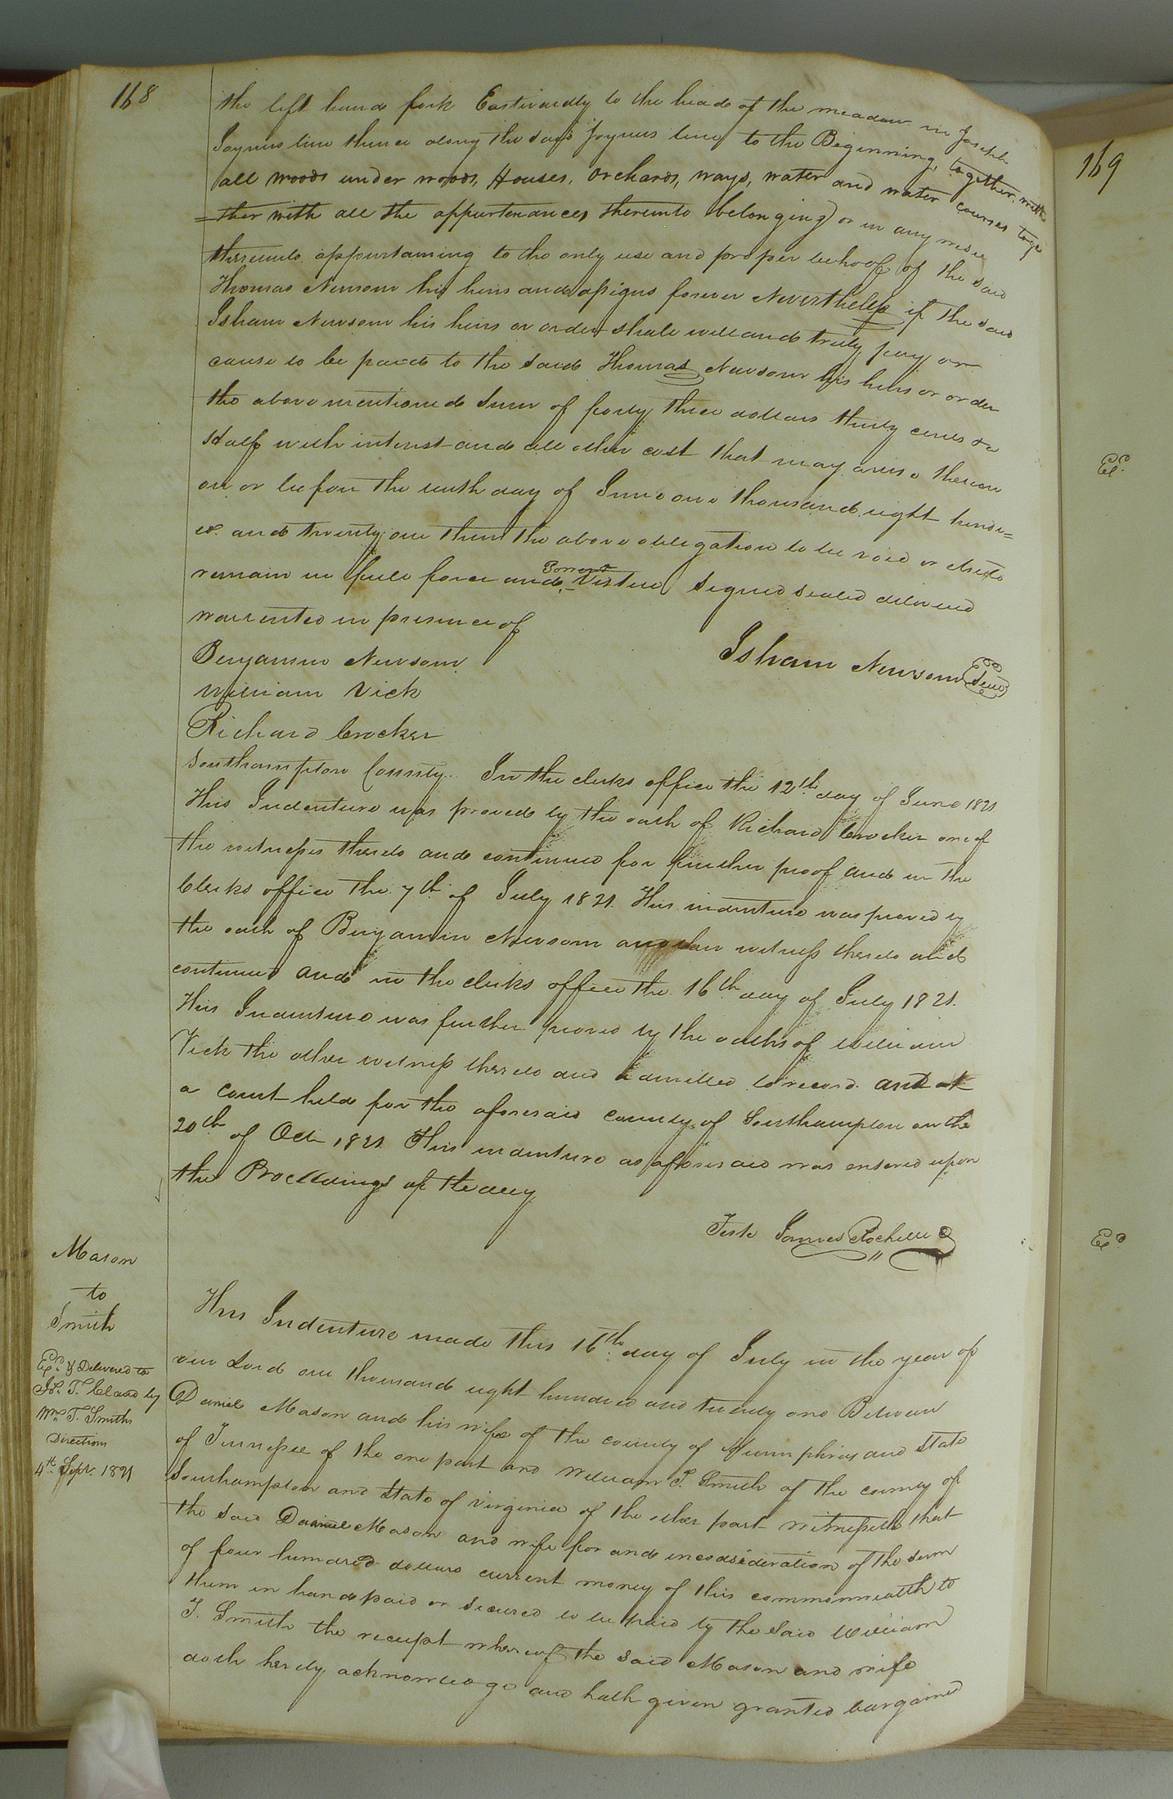 168
the left hand fork Eastwardly to the head of the meadow in Joseph
Joyners line thence along the said Joyners line to the Beginning, together with
all woods under woods, Houses, Orchards, ways, water and water courses toge
=ther with all the appurtenances thereunto belonging or in any wise
thereunto appurtaining to the only use and proper behoof of the said
Thomas Newsom his heirs and assigns forever Nevertheless if the said
Isham Newsom his heirs or order shall well and truly pay or
cause to be paid to the said Thomas Newsom his heirs or order
the above mentioned Sum of forty three dollars thirty cents &
Half with interest and all other cost that may arise thereon
on or before the tenth day of June one thousand eight hund=
ed and twenty one then the above obligation to be void or else to
remain in full force and Virtue Signed sealed delivered
warrented in presence of
Benjamin Newsom
Isham Newsom Seal
William Vick
Richard Crocker
Southampton County. In the clerks office the 12th day of June 1821
This Indenture was proved by the oath of Richard Crocker one of
the witnesses thereto and continued for further proof and in the
Clerks office the 7th of July 1821. This indenture was proved by
the oath of Benjamin Newsom another witness thereto and
continued and in the clerks office the 16th day of July 1821.
This Indenture was further proved by the oaths of William
Vick the other witness thereto and admitted to record. and at
a court held for the aforesaid county of Southampton on the
20th of Octr 1821 This indenture as aforesaid was entered upon
the Proceedings of the day
Teste James Rochelle C
Mason
to
Smith
Ex. & Delivered to
T. Cland by
Wm. T. Smiths
Direction
4th Sept. 1821
This Indenture made this 16th day of July in the year of
our Lord one thousand eight hundred and twenty one Between
Daniel Mason and his wife of the county of Humphries and State
of Tennessee of the one part and William T. Smith of the county of
Southampton and State of Virginia of the other part witnesseth that
the said Daniel Mason and wife for and in consideration of the sum
of four hundred dollars current money of this commonwealth to
them in hand paid or secured to be paid by the said William
T. Smith the receipt whereof the said Mason and wife
doth hereby acknowledge and hath given granted bargained
169
Ex.
Exd